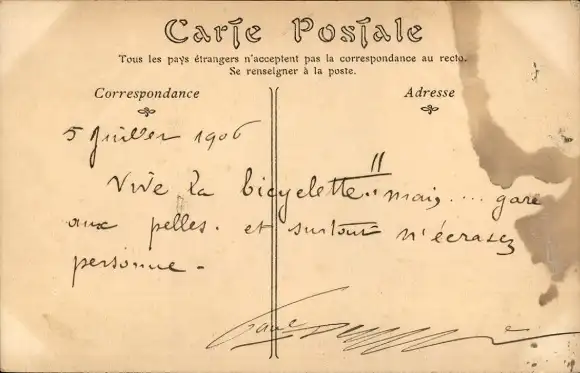 Carte Postale
Tous les pays étrangers n'acceptent pas la correspondance au recto.
Se renseigner à la poste.
Correspondance
Adresse
5 Juillet 1906
Vive la bicyclette!! mais .... gare
aux pelles. et surtout n'écrasez
personne.